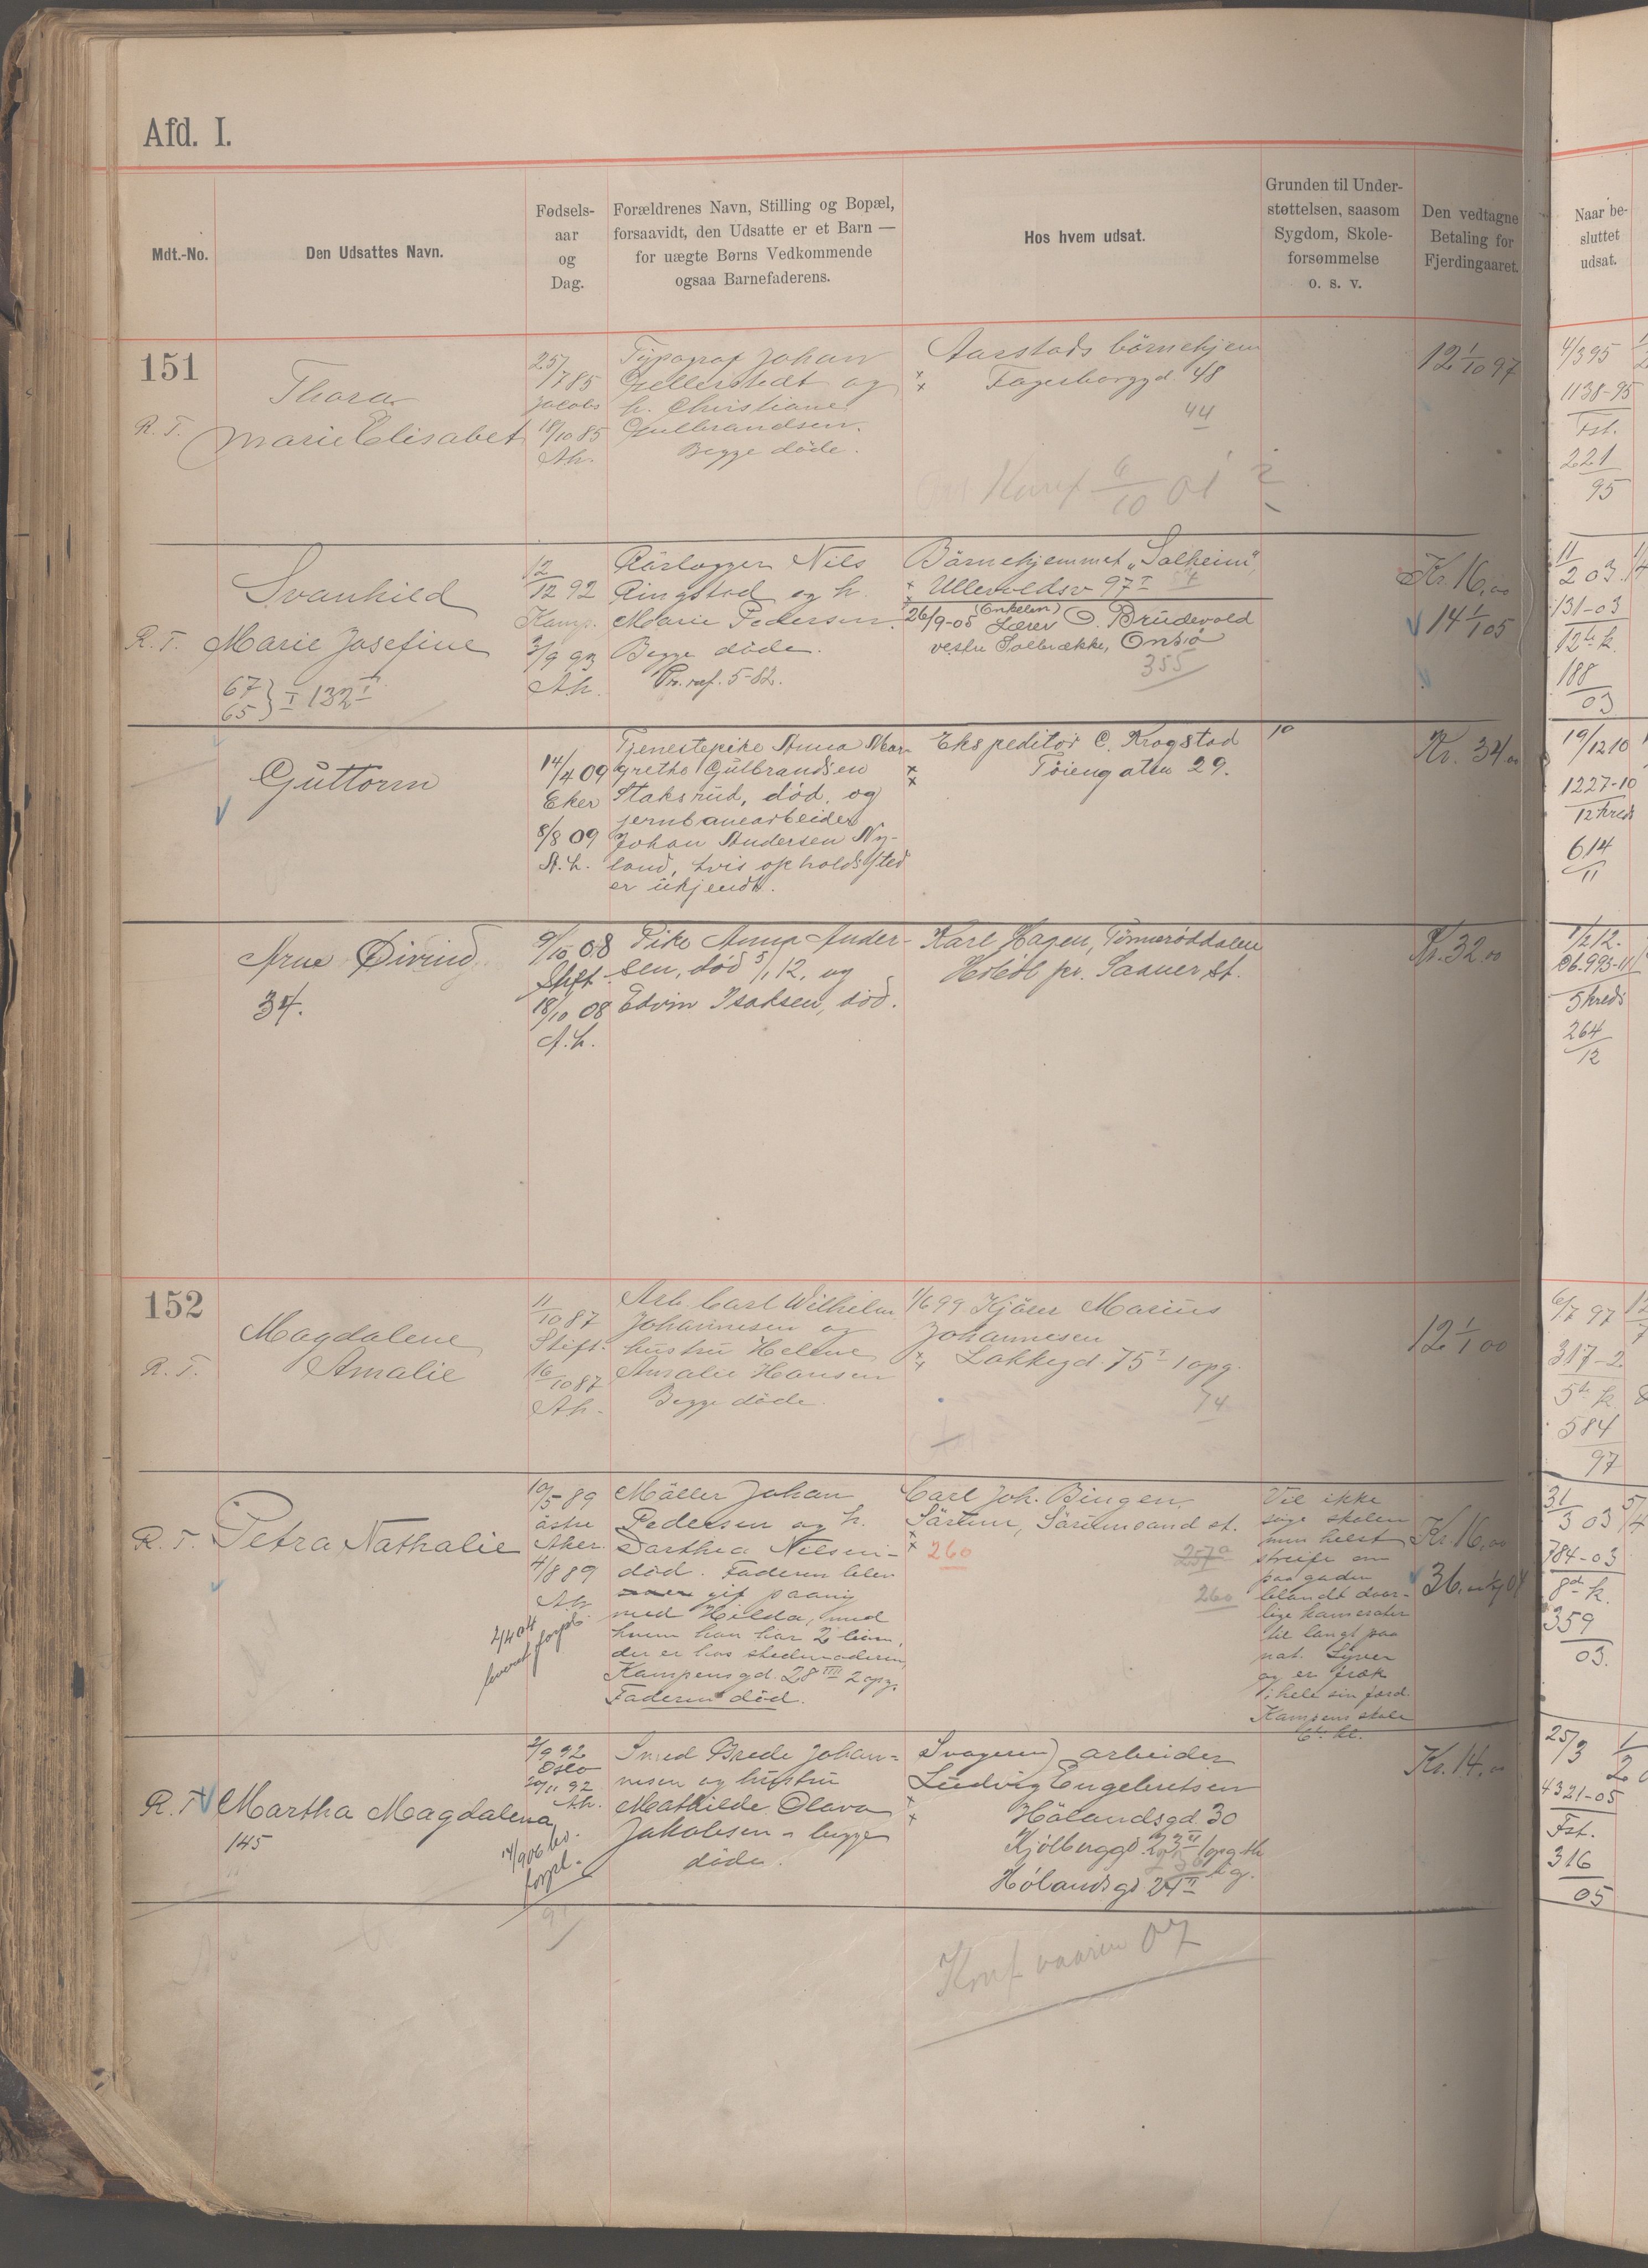 Afd. I.
Mdt.-No.
Den Udsattes Navn.
Fødsels-
aar
og
Dag.
Forældrenes Navn, Stilling og Bopæl,
forsaavidt, den Udsatte er et Barn —
for uægte Børns Vedkommende
ogsaa Barnefaderens.
Hos hvem udsat.
Grunden til Under-
støttelsen, saasom
Sygdom, Skole-
forsømmelse
o. s. v.
Den vedtagne
Betaling for
Fjerdingaaret.
Naar be-
sluttet
udsat.
151
R. T.
Thora
Marie Elisabet
25/
785
Jacobs
18/10 85
Ah.
Typograf Johan
Gellerstedt og
h. Christiane
Gulbrandsen.
Begge døde.
Aarstads börnehjem
Fagerborggd. 48
44
Konf 6/10 01
12 1/10 97
4/3 95
1138-95
Fst.
221
95
R. T.
Svanhild
Marie Josefine
67
65 } I 132 I
12
12 92
Kamp.
3/9 93
Ah.
Rörlægger Nils
Ringstad og h.
Marie Pedersen.
Begge døde.
5-82.
Börnehjemmet „Solheim"
Ullevoldsv 97 I
26/9-05 (Onkelen) Lærer O. Brudevold
vestre Solbrække, Onsø
355
Kr. 16,00
14 1/1 05
11
2 03
131-03
12te k.
188
03
Guttorm
14/4 09
Eker
8/8 09
A.h.
Tjenestepike Anna Mar-
grethe Gulbrandsen
Staksrud, død, og
jernbanearbeider
Johan Andersen Ny-
land, hvis opholdssted
er ukjendt.
Ekspeditör C. Krogstad
Töiengaten 29.
10
Kr. 34.00
19/12 10
1227-10
12 kreds
614
11
Arne Öivind
34.
9/10 08
Stift.
18/10 08
A.h.
Pike Anna Ander-
sen, død 5/1 12, og
Edvin Isaksen, død.
Karl Hagen, Tömmeröddalen
Höböl pr. Saaner St.
Kr. 32.00
1/2 12.
Ob. 993-11
5 kreds
264
12
152
R. T.
Magdalene
Amalie
11
10 87
Stift.
16
10 87
Ah.
Arb. Carl Wilhelm
Johannesen og
hustru Helene
Amalie Hansen
Begge døde.
1/6 99 Kjörer Marius
Johannesen
Lakkegd. 75 I 1 opg.
74
12 1/1 00
6/7 97
317-2
5te k
584
97
R. T.
Petra Nathalie
10/5 89
östre
Aker
4/8 89
Ah.
2/4 04
Möller Johan
Pedersen og h.
Darthea Nilsen -
død. Faderen blev
gif paany
med Hilda, med
hvem han har 2 börn,
der er hos stedmoderen,
Kampensgd. 28 III 2 opg.
Faderen død.
Carl Joh. Bingen,
Sörum, Sörumsand st.
260
257a
260
Vil ikke
söge skolen
men helst
streife om
paa gaden
blandt daar-
lige kamerater
til langt paa
nat. Lyver
og er fræk
i hele sin færd.
Kampens skole
6te kl.
Kr. 16,00
31
3 03
784-03
8de k.
359
03.
R. T
Martha Magdalena
145
2/9 92
Oslo
20/11 92
Ah.
14/9 06 lev.
forpl.
Smed Brede Johan-
nesen og hustru
Mathilde Olava
Jakobsen - begge
døde.
Svogeren) arbeider
Ludvig Engebretsen
Hölandsgd. 30
Hölandsgd. 24 II
Konf vaaren 07
Kr. 14,00
25/3
4321-05
Fst.
316
05